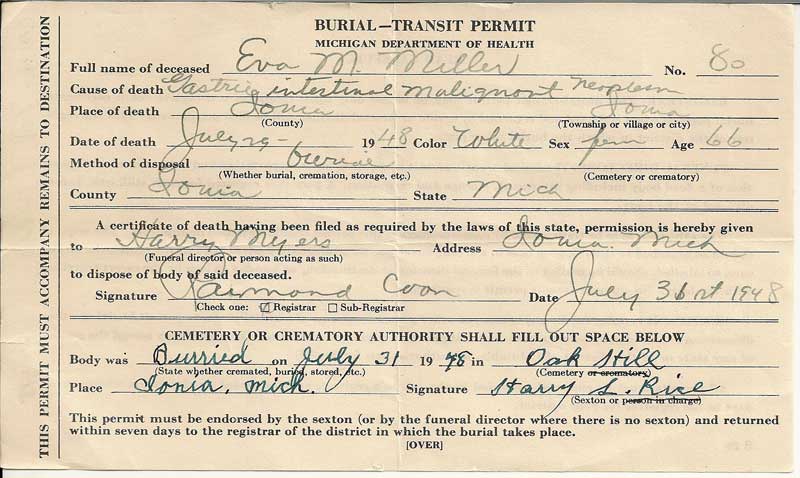 BURIAL—TRANSIT PERMIT
MICHIGAN DEPARTMENT OF HEALTH
Full name of deceased Eva M. Miller No. 80
Cause of death Gastric intestinal malignant neoplesm
Place of death Ionia Ionia
(County) (Township or village or city)
Date of death July 29- 1948 Color White Sex fem Age 66
Method of disposal burial
(Whether burial, cremation, storage, etc.) (Cemetery or crematory)
County Ionia State Mich
A certificate of death having been filed as required by the laws of this state, permission is hereby given
to Harry Myers Address Ionia Mich
(Funeral director or person acting as such)
to dispose of body of said deceased.
Signature Raimond Coon Date July 31st 1948
Check one: ☑ Registrar ☐ Sub-Registrar
CEMETERY OR CREMATORY AUTHORITY SHALL FILL OUT SPACE BELOW
Body was Burried on July 31 1948 in Oak Hill
(State whether cremated, buried, stored, etc.) (Cemetery or crematory)
Place Ionia, Mich. Signature Harry L. Rice
(Sexton or person in charge)
This permit must be endorsed by the sexton (or by the funeral director where there is no sexton) and returned
within seven days to the registrar of the district in which the burial takes place.
[OVER]
THIS PERMIT MUST ACCOMPANY REMAINS TO DESTINATION